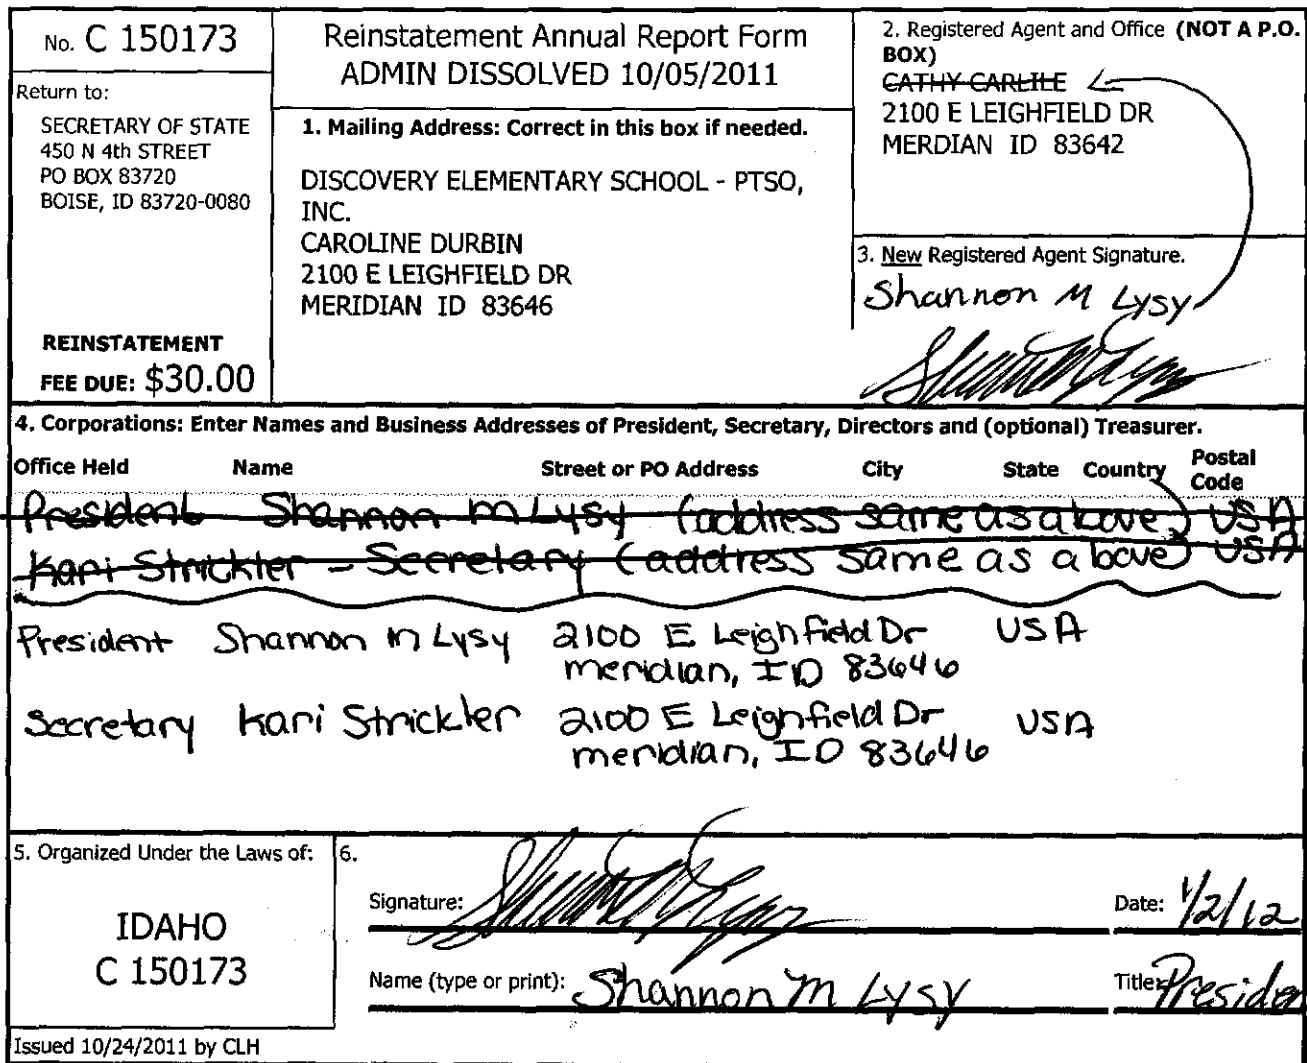 No. C 150173
Return to:
SECRETARY OF STATE
450 N 4th STREET
PO BOX 83720
BOISE, ID 83720-0080
REINSTATEMENT
FEE DUE: $30.00
Reinstatement Annual Report Form
ADMIN DISSOLVED 10/05/2011
1. Mailing Address: Correct in this box if needed.
DISCOVERY ELEMENTARY SCHOOL - PTSO,
INC.
CAROLINE DURBIN
2100 E LEIGHFIELD DR
MERIDIAN ID 83646
2. Registered Agent and Office (NOT A P.O.
BOX)
CATHY CARLILE
2100 E LEIGHFIELD DR
MERDIAN ID 83642
3. New Registered Agent Signature.
Shannon M Lysy
4. Corporations: Enter Names and Business Addresses of President, Secretary, Directors and (optional) Treasurer.
Office Held Name Street or PO Address City State Country Postal
Code
President Shannon M Lysy (address same as above) USA
Kari Strickler - Secretary (address same as above) USA
President Shannon M Lysy 2100 E Leighfield Dr USA
meridian, ID 83646
Secretary Kari Strickler 2100 E Leighfield Dr USA
meridian, ID 83646
5. Organized Under the Laws of:
IDAHO
C 150173
6.
Signature:
Date: 1/2/12
Name (type or print): Shannon M Lysy
Title: Presiden
Issued 10/24/2011 by CLH